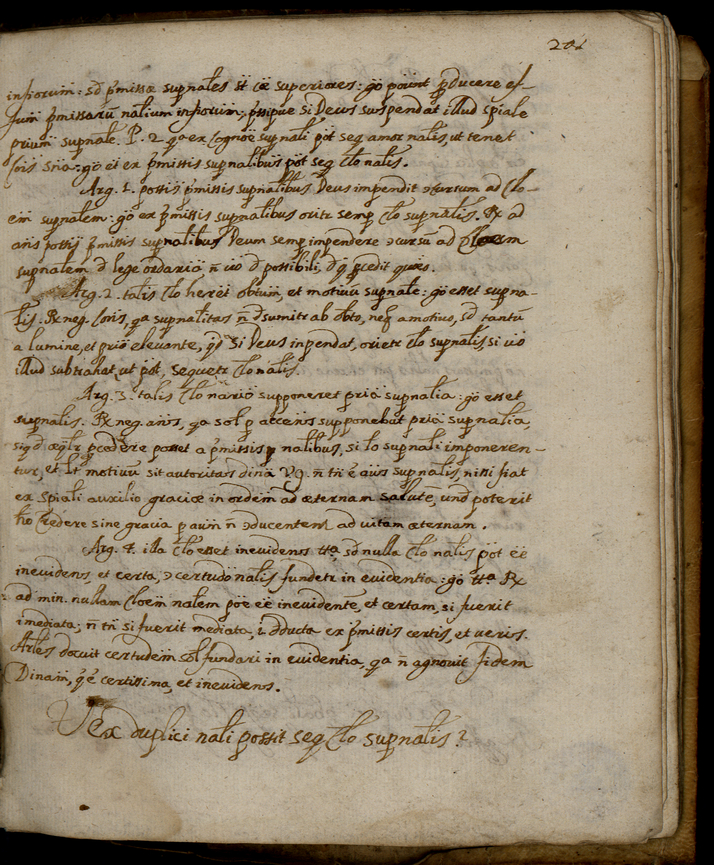 201
inferiorum: sd p̃missæ supnales st cæ superiores: gò pount pducere es-
sum p̃missarũ nalium inferiorum; p̃ssipue si Deus suspendat illud spiale
prium supnale. P. 2. qa ex Cognoe supnali pot seq amor nalis, ut tenet
Cois snia: gò et ex p̃missis supnalibus pot seq Clo nalis.
Arg. 1. positis p̃missis supnalibus Deus impendit ɔcursum ad Clo-
em supnalem: gò ex p̃missis supnalibus oritr semp Clo supnalis. Rx ad
ans positis p̃missis supnalibus Deum semp impendere ɔcursũ ad Cloem
supnalem d lege ordaria ñ uo d possibili, d q pcedit quæs.
Arg. 2. talis Clo heret obtum, et motiuũ supnale: gò esset supna-
lis. Rx neg. Cois, qa supnalitas ñ dsumitr ab obto, neq amotiuo, sd tantũ
a lumine, et prio eleuante, qd si Deus inpendat, orietr clo supnalis, si uo
illud subtrahat, ut pot, sequetr Clo nalis.
Arg. 3. talis Clo nario supponeret pria supnalia: gò esset
supnalis. Rx neg. ans, qa sol p accens supponebat pria supnalia,
sigd æqlr pcedere posset a p̃missis nalibus, si lo supnali imponeren-
tur, et lt motiuũ sit autoritas dina vg. ñ tñ e aus supnalis, nisi fiat
ex spiali auxilio graciæ in ordem ad æternam salute, und poterit
ho Credere sine gracia p aum ñ ɔducentem ad uitam æternam.
Arg. 4. illa Clo esset ineuidens tta sd nulla Clo nalis pot ee
ineuidens, et certa, ɔ certudo nalis fundetr in euidentia: gò tta Rx
ad min. nullam Cloem nalem poe ee ineuidente, et certam, si fuerit
imediata; ñ tñ si fuerit mediata, i. dducta ex p̃missis certis, et ueris.
Arles docuit certudem sol fundari in euidentia, qa ñ agnouit fidem
Dinam, q e certissima, et ineuidens.
V ex duplici nali possit seq Clo supnalis?